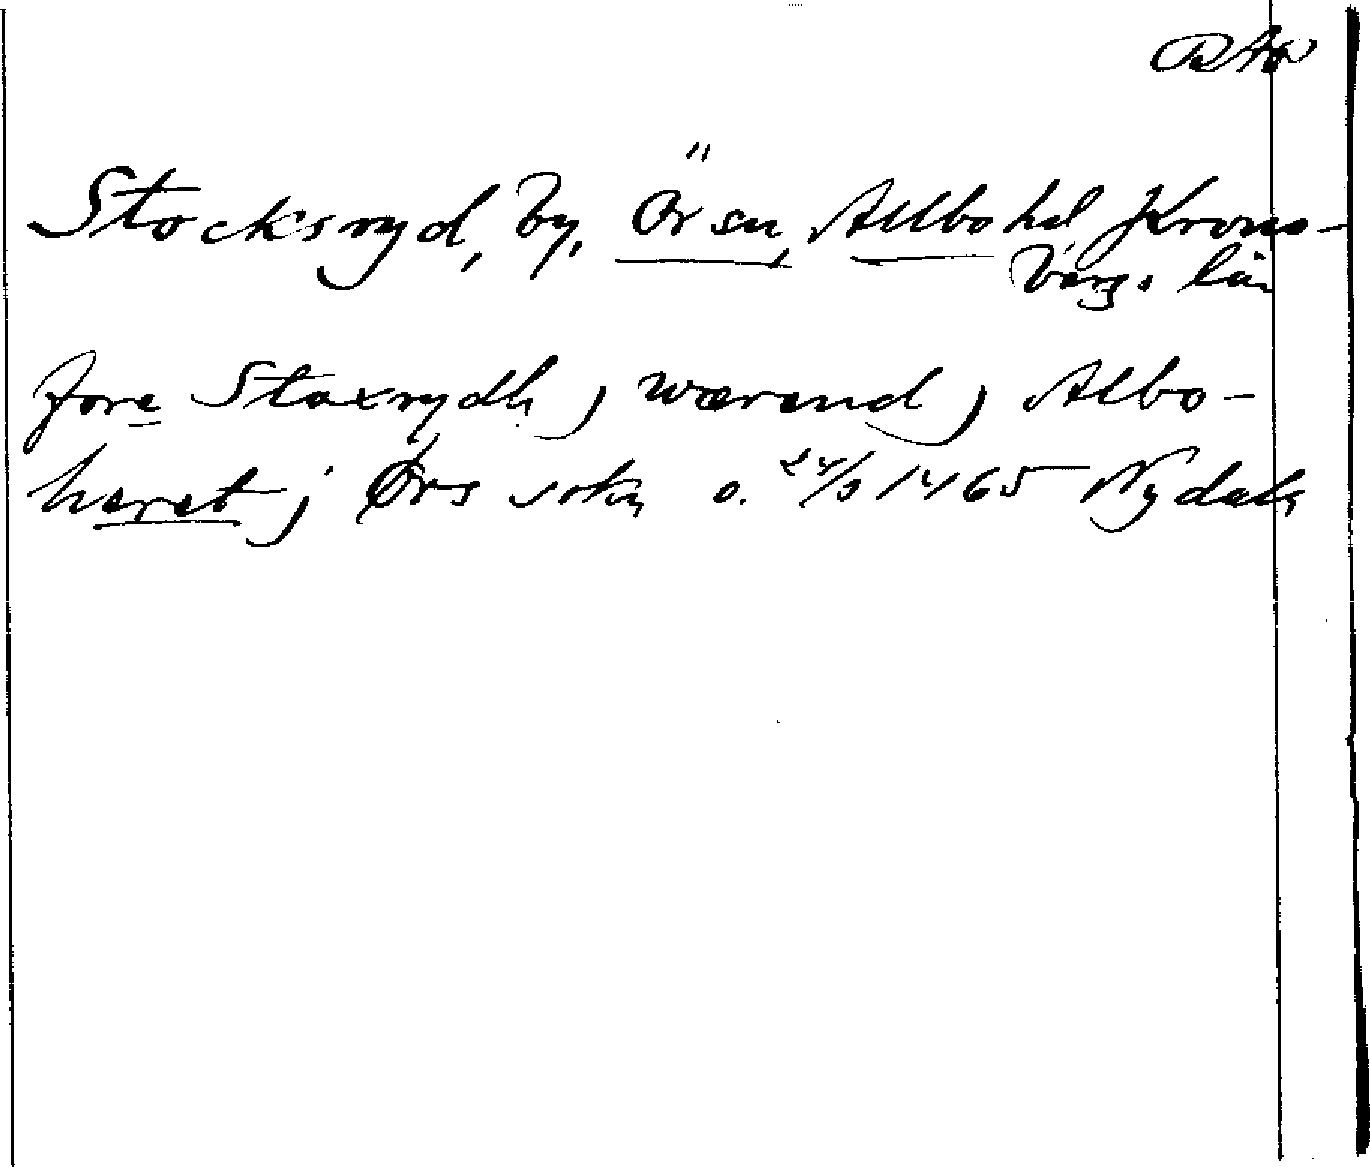 Stocksryd, by, Ör sn, Allbo hd Krono-
bergs. län
fore Staxrydh j wærend j Albo-
heret j Ørs sokn o. 24/3 1465 Nydala